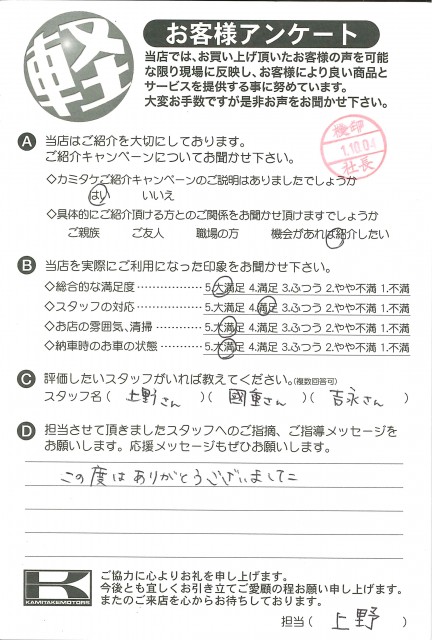 軽
お客様アンケート
当店では、お買い上げ頂いたお客様の声を可能
な限り現場に反映し、お客様により良い商品と
サービスを提供する事に努めています。
大変お手数ですが是非お声をお聞かせ下さい。
A 当店はご紹介を大切にしております。
ご紹介キャンペーンについてお聞かせ下さい。
検印
1.10.04
社長
◇カミタケご紹介キャンペーンのご説明はありましたでしょうか
はい いいえ
◇具体的にご紹介頂ける方とのご関係をお聞かせ頂けますでしょうか
ご親族 ご友人 職場の方 機会があれば紹介したい
B 当店を実際にご利用になった印象をお聞かせ下さい。
◇総合的な満足度・・・・・・・・・・・・・・ 5.大満足 4.満足 3.ふつう 2.やや不満 1.不満
◇スタッフの対応・・・・・・・・・・・・・・ 5.大満足 4.満足 3.ふつう 2.やや不満 1.不満
◇お店の雰囲気、清掃・・・・・・・・・・ 5.大満足 4.満足 3.ふつう 2.やや不満 1.不満
◇納車時のお車の状態・・・・・・・・・・ 5.大満足 4.満足 3.ふつう 2.やや不満 1.不満
C 評価したいスタッフがいれば教えてください。(複数回答可)
スタッフ名( 上野さん )( 國重さん )( 吉永さん )
D 担当させて頂きましたスタッフへのご指摘、ご指導メッセージを
お願いします。応援メッセージもぜひお願いします。
この度はありがとうございました
K
KAMITAKEMOTORS
ご協力に心よりお礼を申し上げます。
今後とも宜しくお引き立てご愛顧の程お願い申し上げます。
またのご来店を心からお待ちしております。
担当( 上野 )